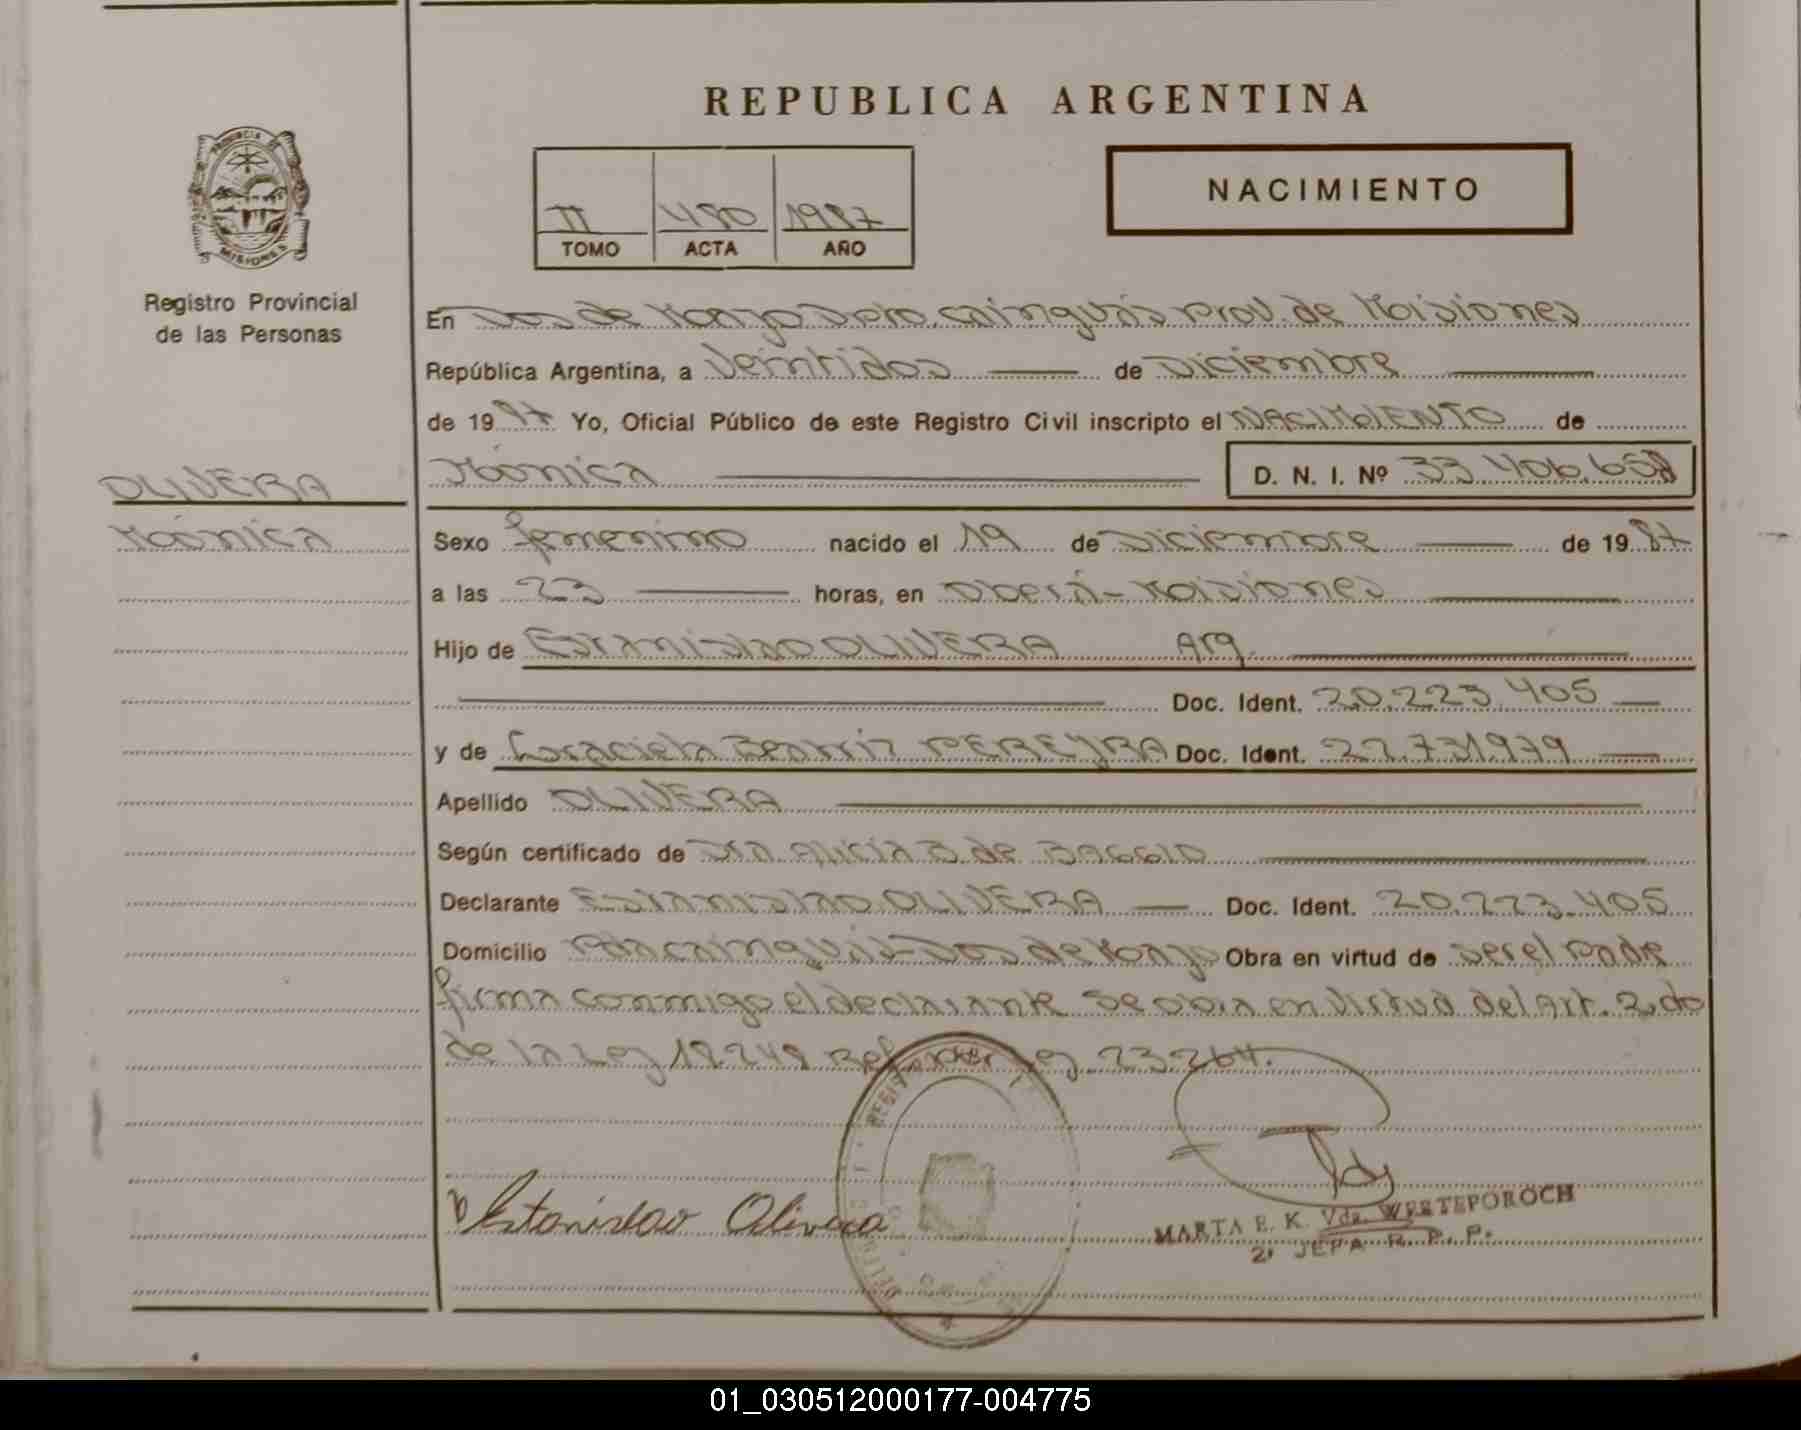 REPUBLICA ARGENTINA
PROVINCIA DE
MISIONES
Registro Provincial
de las Personas
II 480 1987
TOMO ACTA AÑO
NACIMIENTO
En Dos de Mayo Dpto. Cainguás Prov. de Misiones
República Argentina, a Veintidos de Diciembre
de 1987 Yo, Oficial Público de este Registro Civil inscripto el NACIMIENTO de
Mónica D. N. I. Nº 33.406.658
OLIVERA
Mónica
Sexo femenino nacido el 19 de Diciembre de 1987
a las 23 horas, en Oberá - Misiones
Hijo de Estanislao OLIVERA Arg.
Doc. Ident. 20.223.405
y de Graciela Beatriz PEREYRA Doc. Ident. 22.731.979
Apellido OLIVERA
Según certificado de Dra. Alicia B. de BAGGIO
Declarante Estanislao OLIVERA Doc. Ident. 20.223.405
Domicilio Pda Cainguás - Dos de Mayo Obra en virtud de ser el padre
firma conmigo el declarante Se obra en virtud del Art. 2do
de la Ley 18248 Ref. por Ley 23.264.
Estanislao Olivera
MARTA E. K. Vda. WERTEPOROCH
2ª JEFA R. P. P.
01_030512000177-004775